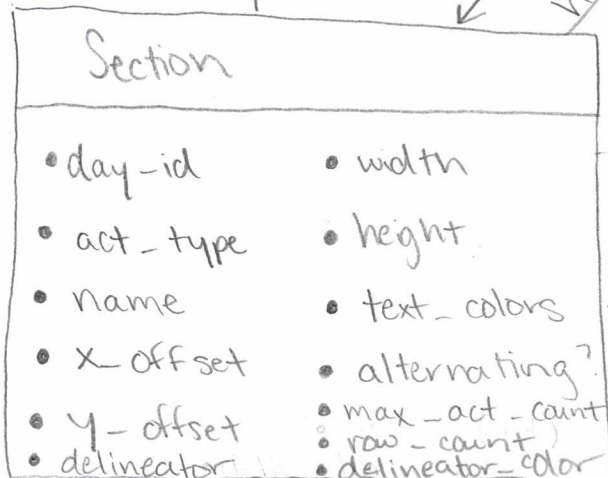 Section
day-id
act_type
name
x_offset
y-offset
delineator
width
height
text_colors
alternating?
max_act_count
row_count
delineator_color